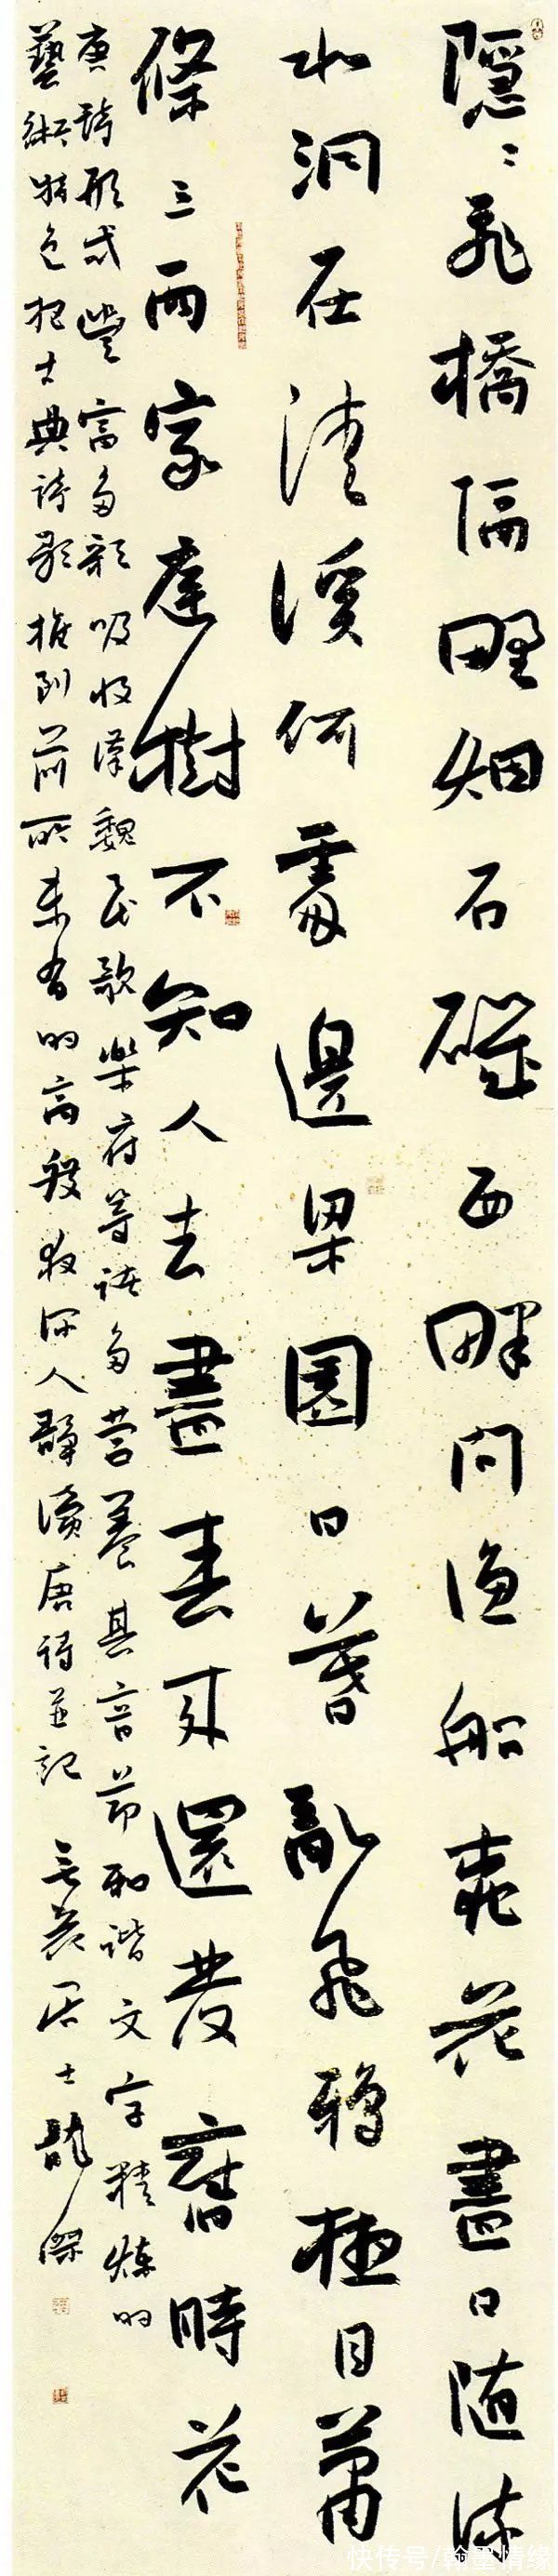 隱〻飛橋隔野煙石磯西畔問漁船桃花盡日隨流
水洞在清溪何處邊梁園日暮亂飛鴉極目蕭
條三兩家庭樹不知人去盡春來還發舊時花
唐詩形式豐富多彩吸收漢魏民歌樂府等諸多營養其音节和谐文字精煉的
藝術特色把古典詩歌推到前所未有的高度夜深人靜讀唐诗並記 居士
快传号/翰墨情缘